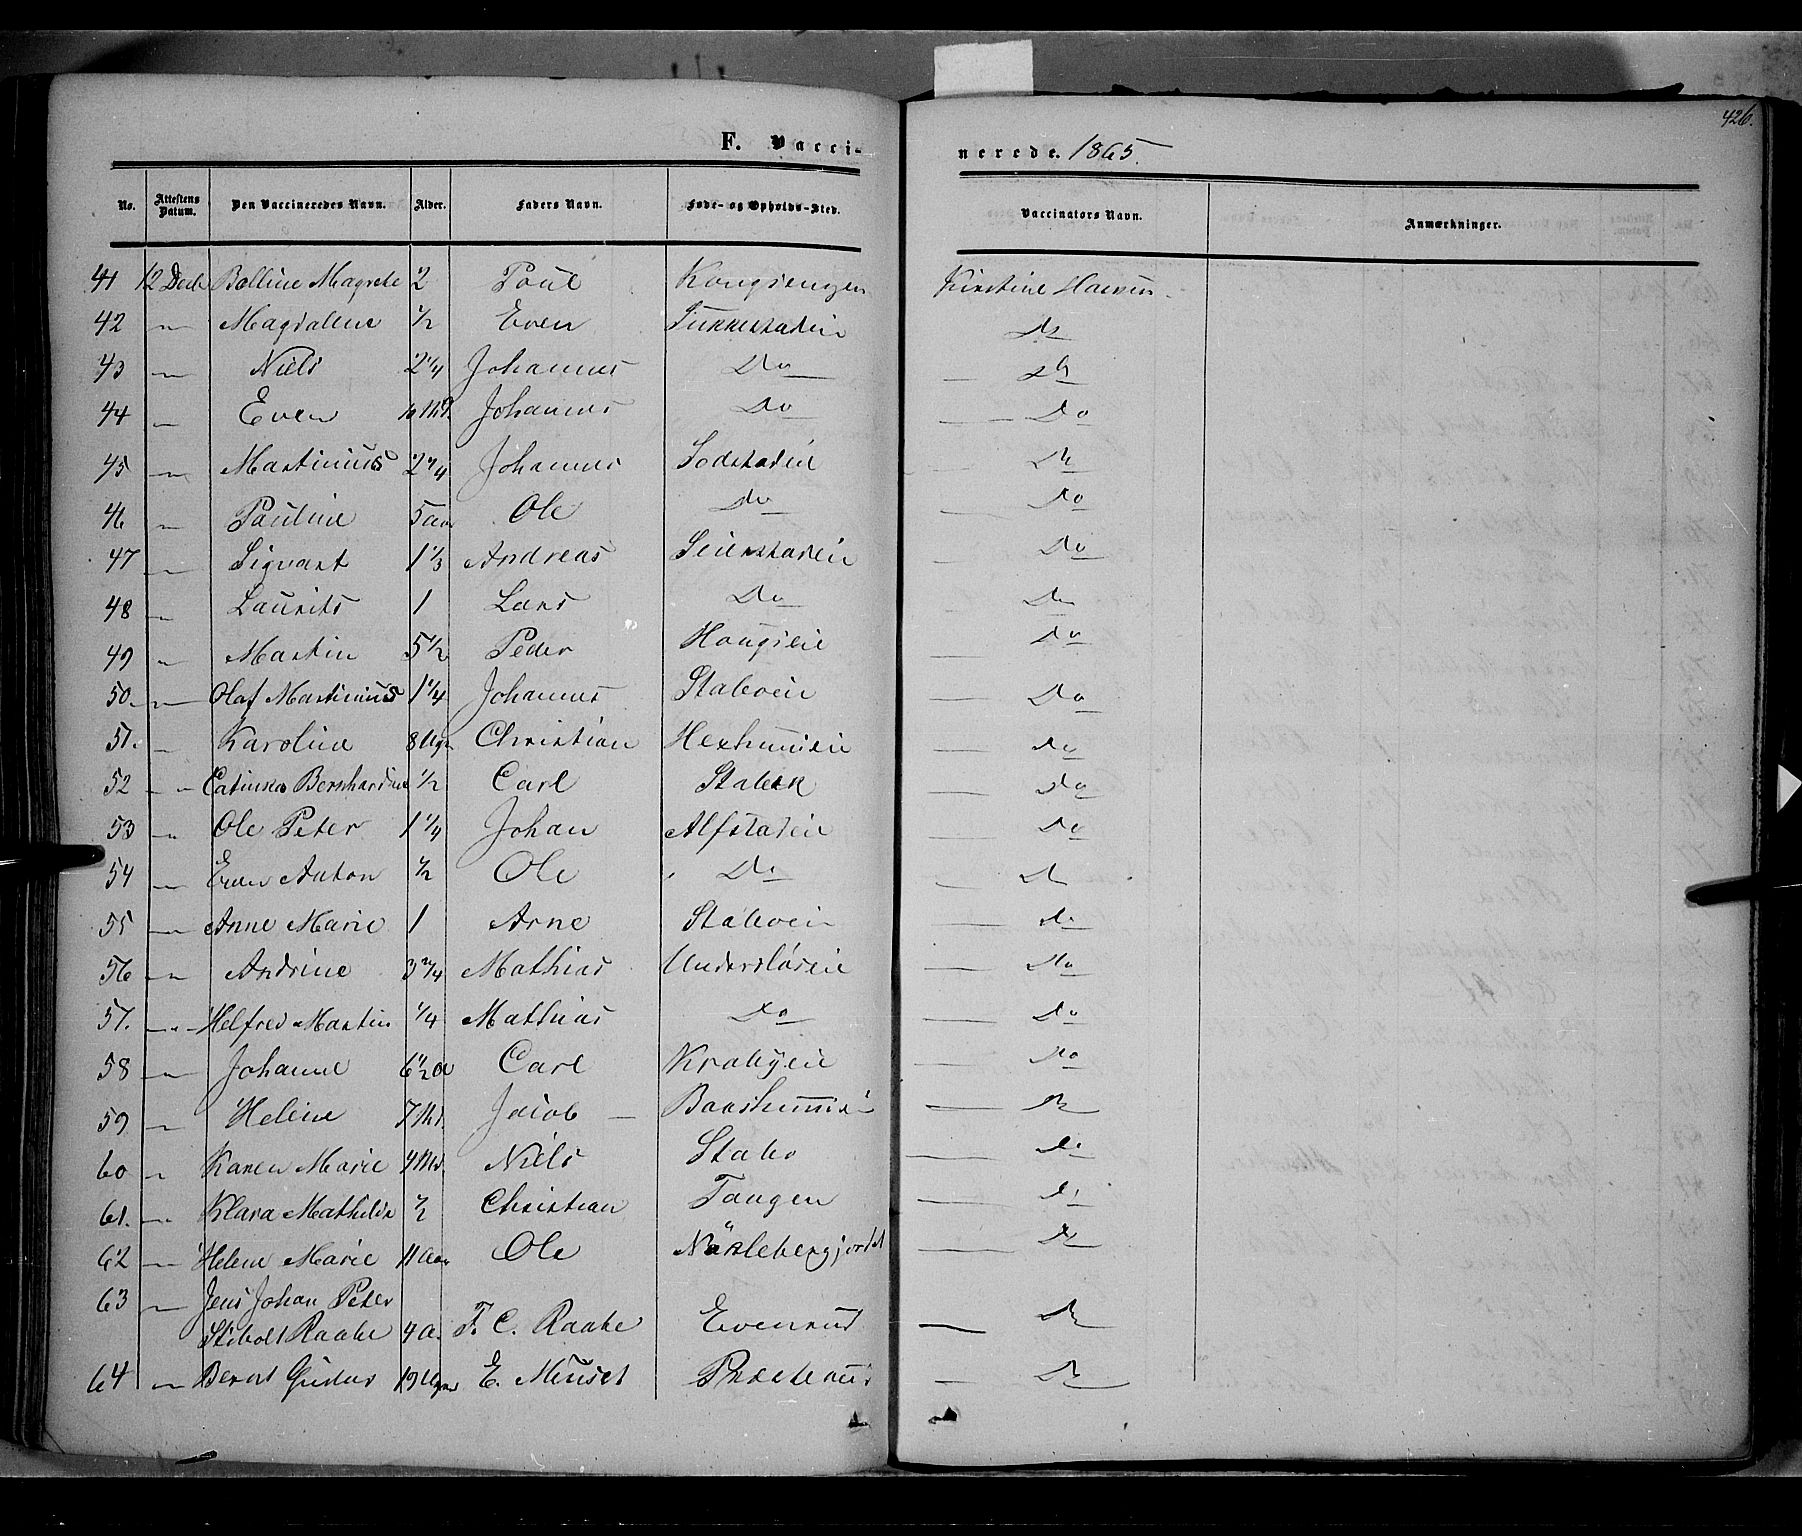 426.
F. Vacci-
nerede. 1865.
No. Attestens Datum. Den Vaccineredes Navn. Alder. Faders Navn. Føde- og Opholds-Sted. Vaccinators Navn. Anmærkninger.
41 12 Decbr Bolline Magrete 2 Poul Kongsengen Kirstine
42 — Magdalene 1/2 Even Do
43 — Niels 2 1/4 Johannes Do — Do
44 — Even Johannes Do — Do
45 — Martinius 2 1/4 Johannes Sodstadeie — Do
46 — Pauline 5 aar Ole Do — Do
47 — Sigvart 1 1/3 Andreas Seierstadeie — Do
48 — Laurits 1 Lars Do — Do
49 — Martin 5 1/2 Peder Hougseie — Do
50. — Olaf Martinius 1 1/4 Johannes Staboeie — Do
51. — Karoline 8 Ugr Christian — Do
52 — Catinka Bernhardine 1/2 Carl Stabek — Do
53 — Ole Peter 1 1/4 Johan Alfstadeie — Do
54 — Even Anton 1/2 Ole Do — Do
55 — Anne Marie 1 Arne Staboeie — Do
56 — Andrine 3 3/4 Mathias Undersløseie — Do
57. — Helfred Martin 1/4 Mathias Do — Do
58 — Johanne 6 1/2 a Carl Krabyeie — Do
59 — Helene 7 Md. Jacob — Do
60 — Karen Marie 4 Md. Niels Stabo — Do
61. — Klara Mathilde 1/2 Christian Tangen — Do
62 — Helene Marie 11 aar Ole — Do
63 — Jens Johan Peter
Stibolt Raabe 4 a. F. C. Raabe Evenrud — Do
64 — Bernt Gustav 19 Ugr E. Muset — Do